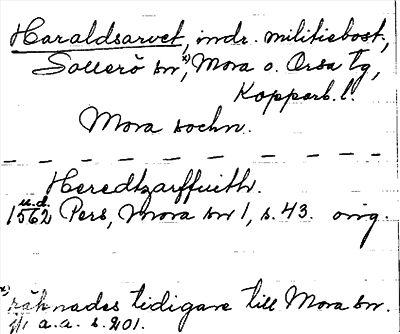 Haraldsarvet, indr. militiebost.,
Sollerö sn x), Mora o. Orsa tg,
Kopparb. l.
Mora sochn.
Heredtzarffuith.
u.d.
1562 Pers, Mora sn 1, s. 43. orig.
x) räknades tidigare till Mora sn.
jfr a.a. s. 201.